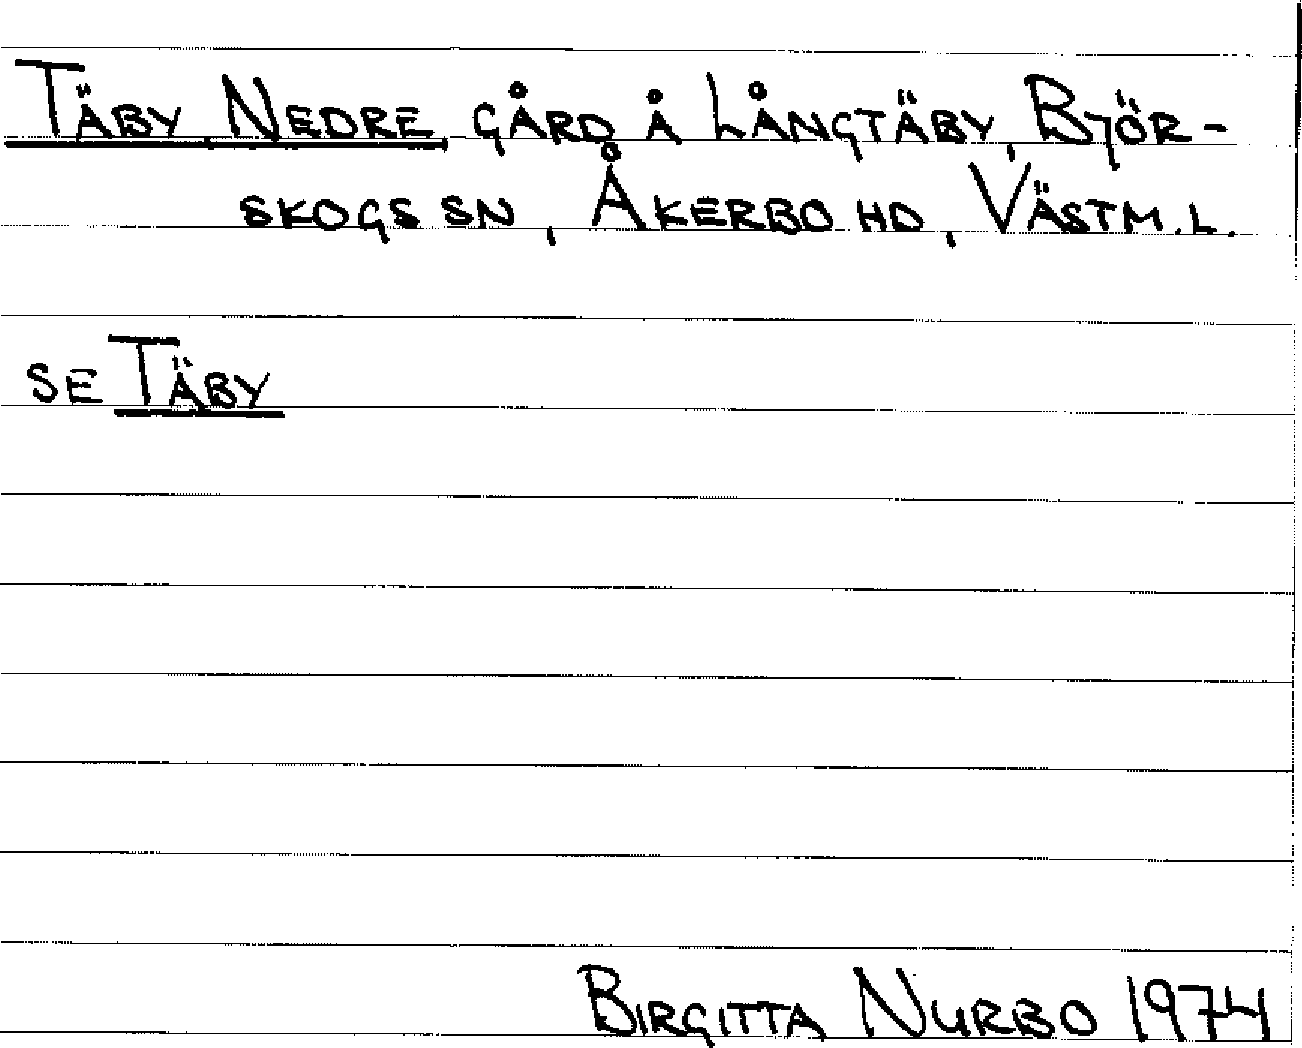 TÄBY NEDRE GÅRD Å LÅNGTÄBY, BJÖR-
SKOGS SN, ÅKERBO HD, VÄSTM.L.
SE TÄBY
BIRGITTA NURBO 1974